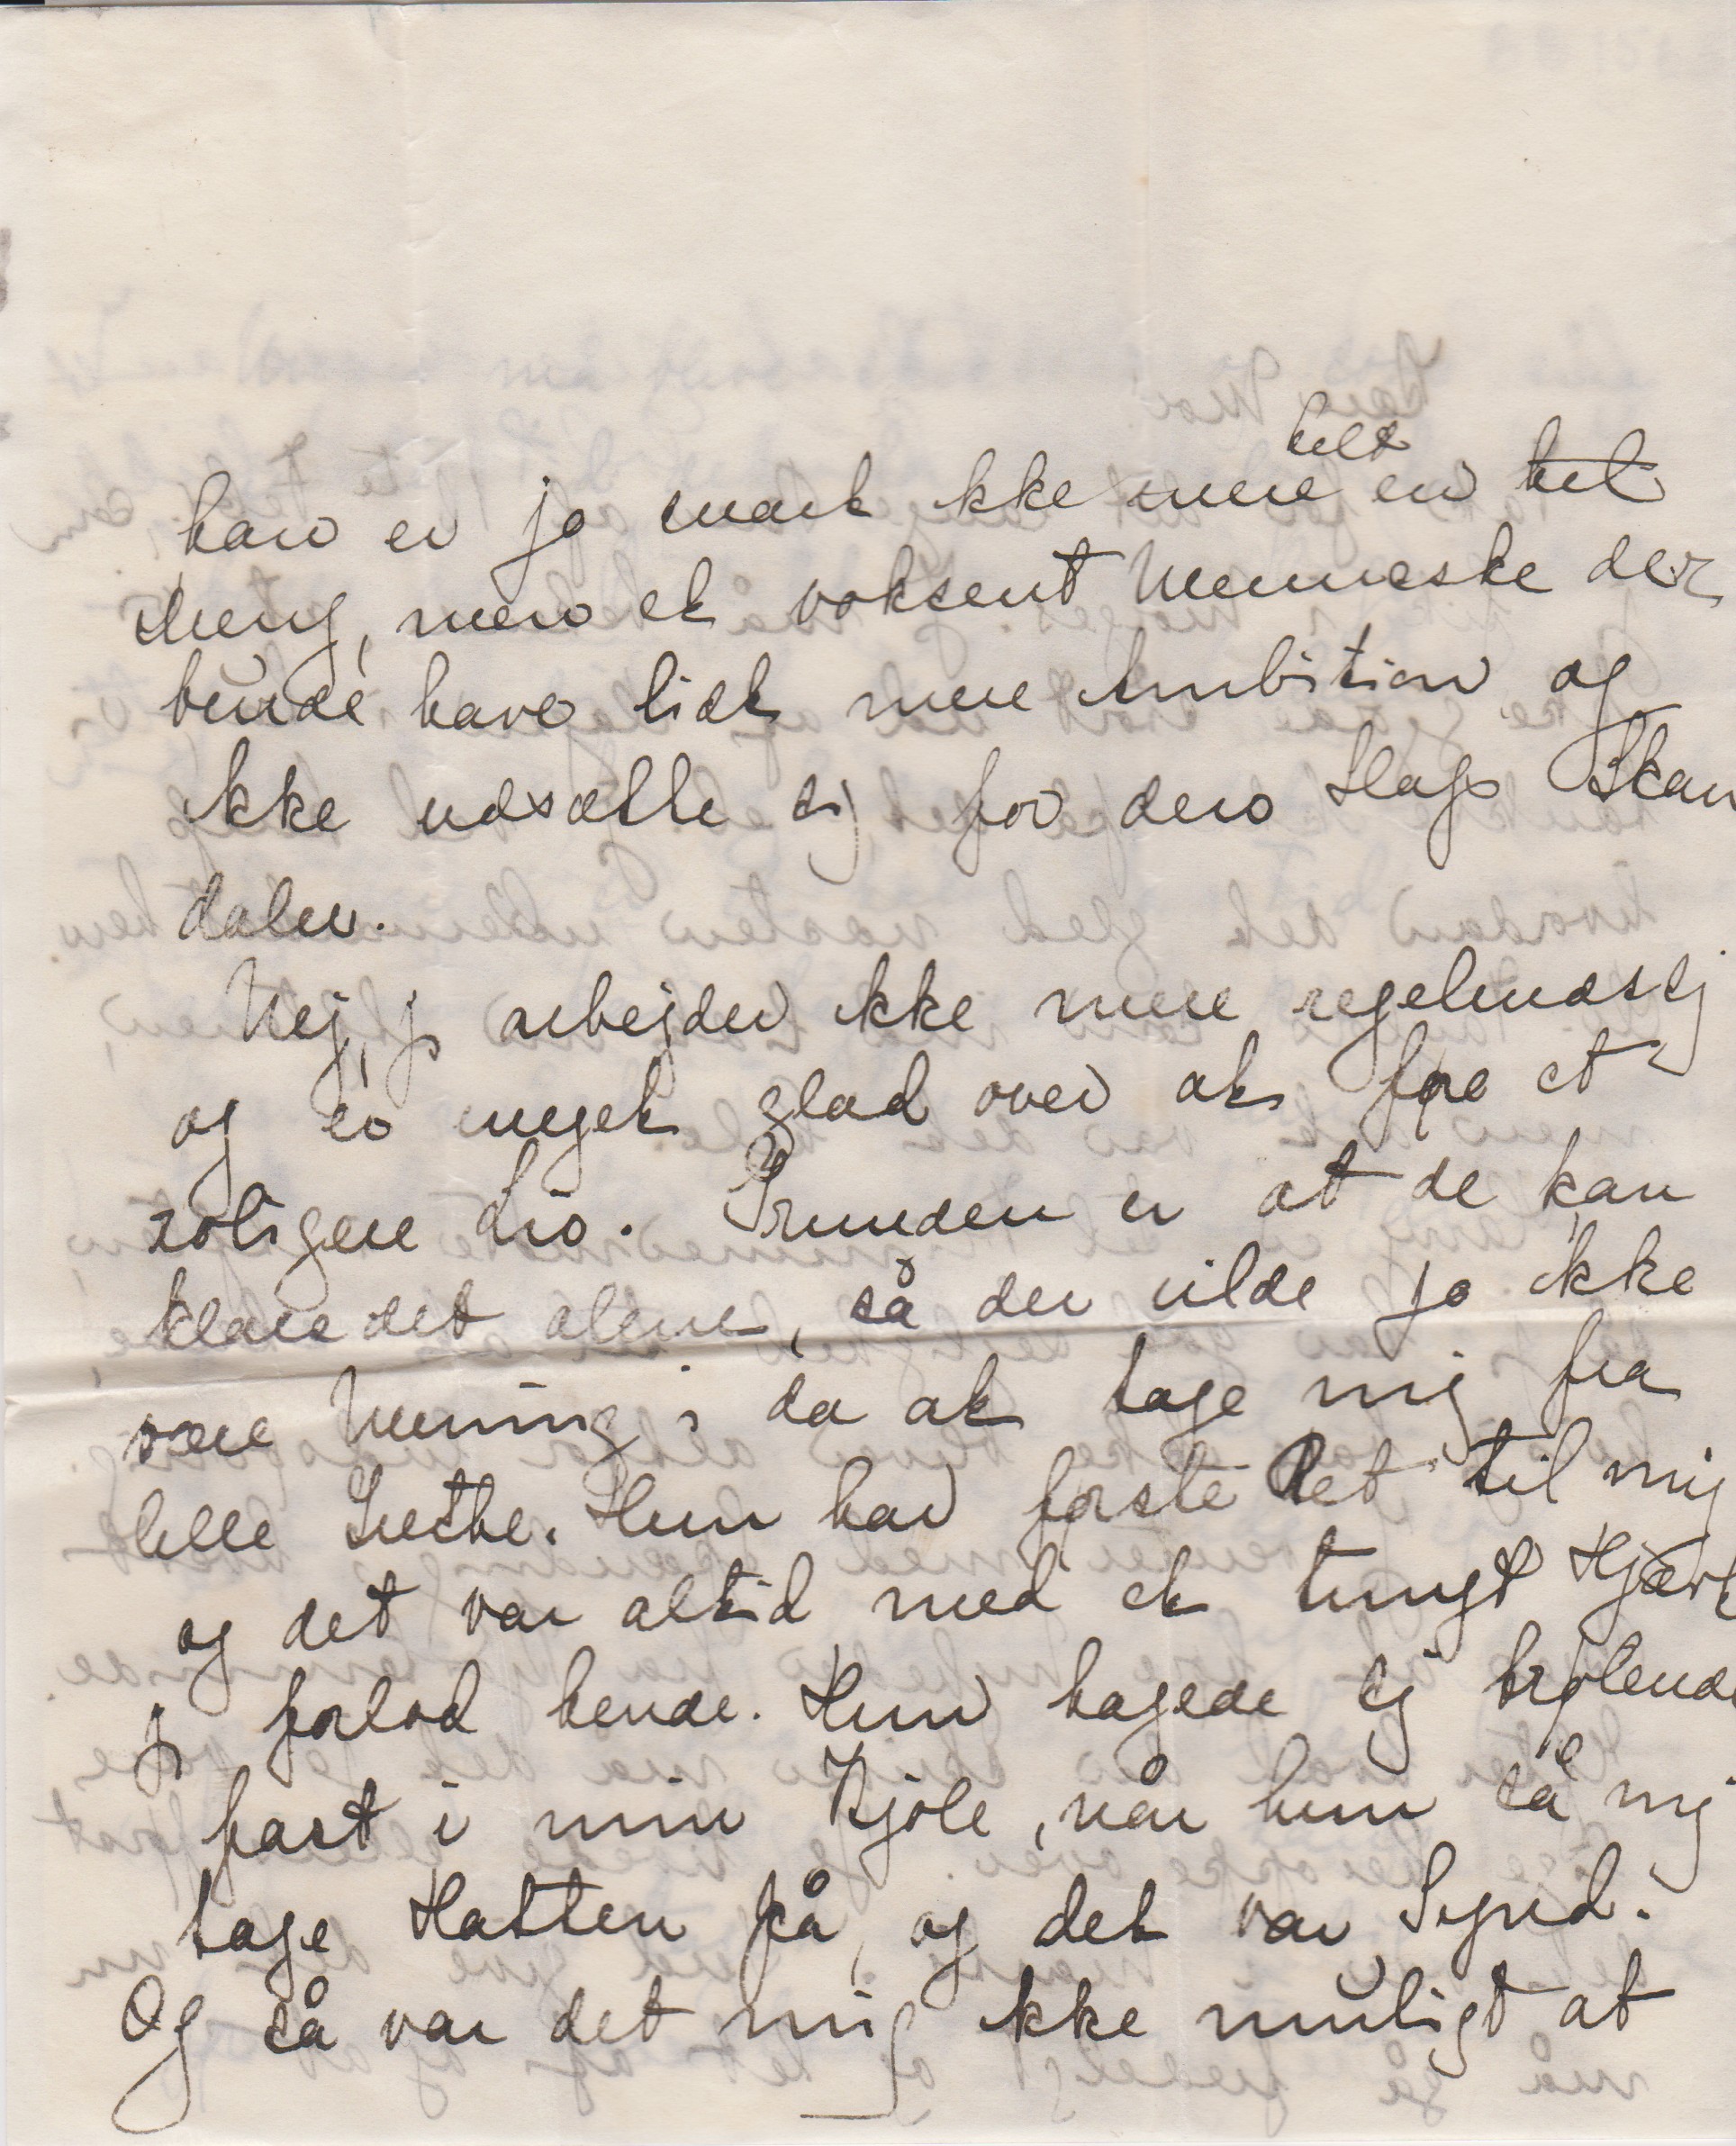 helt
han er jo snart ikke mere en hel
Dreng, men et voksent Menneske der
burde have lidt mere Ambition og
ikke udsætte sig for den Slags Skan
daler.
Nej, jeg arbejder ikke mere regelmæssig
og er meget glad over at føre et
roligere Liv. Grunden er at de kan
klare det alene, så der vilde jo ikke
være Mening i da at tage mig fra
lille Grethe. Hun har første Ret til mig
og det var altid med et tungt Hjært
jeg forlod hende. Hun hagede sig brølende
fast i min Kjole, når hun så mig
tage Hatten på, og det var Synd.
Og så var det mig ikke muligt at